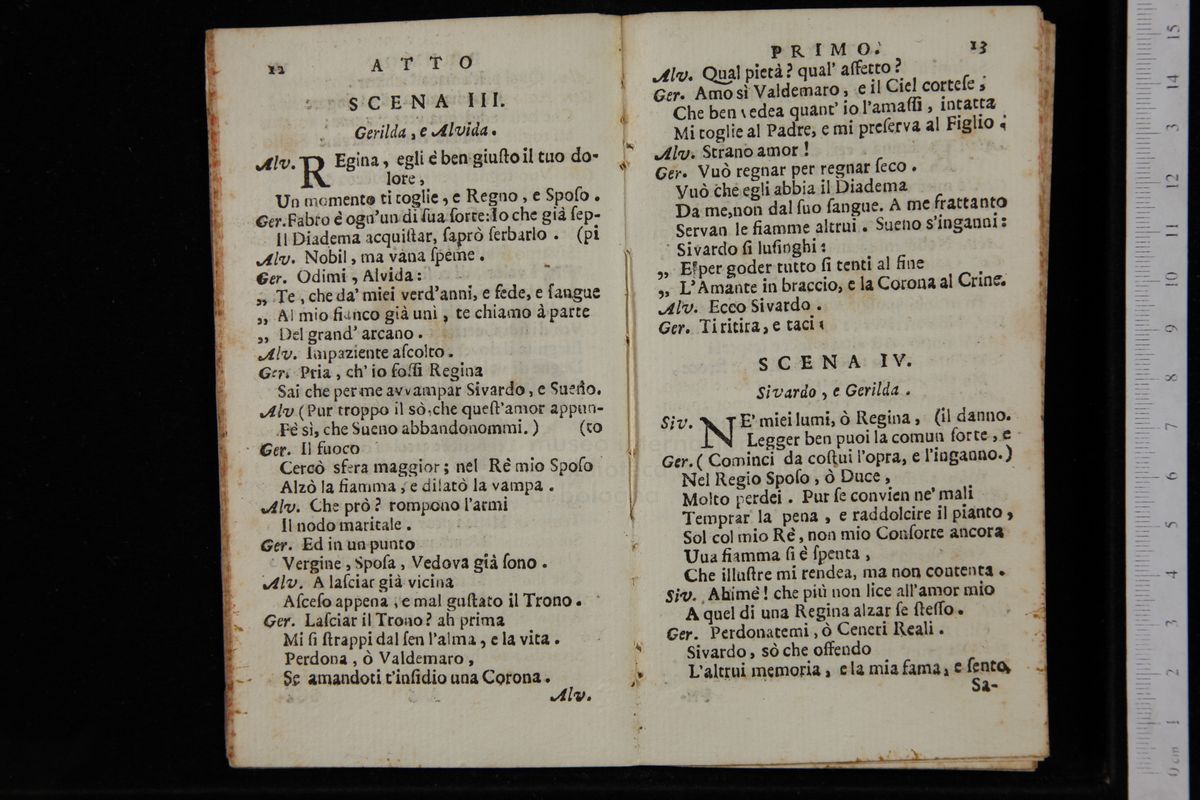 12 ATTO
SCENA III.
Gerilda, e Alvida.
Alv. REgina, egli è ben giuſto il tuo do-
lore,
Un momento ti toglie, e Regno, e Spoſo.
Ger. Fabro è ogn'un di ſua ſorte: Io che già ſep-
Il Diadema acquiſtar, ſaprò ſerbarlo. (pi
Alv. Nobil, ma vana ſpeme.
Ger. Odimi, Alvida:
„ Te, che da' miei verd'anni, e fede, e ſangue
„ Al mio fianco già unì, te chiamo à parte
„ Del grand' arcano.
Alv. Impaziente aſcolto.
Ger. Pria, ch' io foſſi Regina
Sai che per me avvampar Sivardo, e Sueno.
Alv (Pur troppo il sò, che queſt'amor appun-
Fè sì, che Sueno abbandonommi.) (to
Ger. Il fuoco
Cercò sfera maggior; nel Rè mio Spoſo
Alzò la fiamma, e dilatò la vampa.
Alv. Che prò? rompono l'armi
Il nodo maritale.
Ger. Ed in un punto
Vergine, Spoſa, Vedova già ſono.
Alv. A laſciar già vicina
Aſceſo appena, e mal guſtato il Trono.
Ger. Laſciar il Trono? ah prima
Mi ſi ſtrappi dal ſen l'alma, e la vita.
Perdona, ò Valdemaro,
Se amandoti t'inſidio una Corona.
Alv.
PRIMO. 13
Alv. Qual pietà? qual' affetto?
Ger. Amo sì Valdemaro, e il Ciel corteſe,
Che ben vedea quant' io l'amaſſi, intatta
Mi toglie al Padre, e mi preſerva al Figlio.
Alv. Strano amor!
Ger. Vuò regnar per regnar ſeco.
Vuò che egli abbia il Diadema
Da me, non dal ſuo ſangue. A me frattanto
Servan le fiamme altrui. Sueno s'inganni:
Sivardo ſi luſinghi:
„ E per goder tutto ſi tenti al fine
„ L'Amante in braccio, e la Corona al Crine.
Alv. Ecco Sivardo.
Ger. Ti ritira, e taci.
SCENA IV.
Sivardo, e Gerilda.
Siv. NE' miei lumi, ò Regina, (il danno.
Legger ben puoi la comun ſorte, e
Ger. (Cominci da coſtui l'opra, e l'inganno.)
Nel Regio Spoſo, ò Duce,
Molto perdei. Pur ſe convien ne' mali
Temprar la pena, e raddolcire il pianto,
Sol col mio Rè, non mio Conſorte ancora
Uua fiamma ſi è ſpenta,
Che illuſtre mi rendea, ma non contenta.
Siv. Ahimè! che più non lice all'amor mio
A quel di una Regina alzar ſe ſteſſo.
Ger. Perdonatemi, ò Ceneri Reali.
Sivardo, sò che offendo
L'altrui memoria, e la mia fama, e ſento,
Sa-